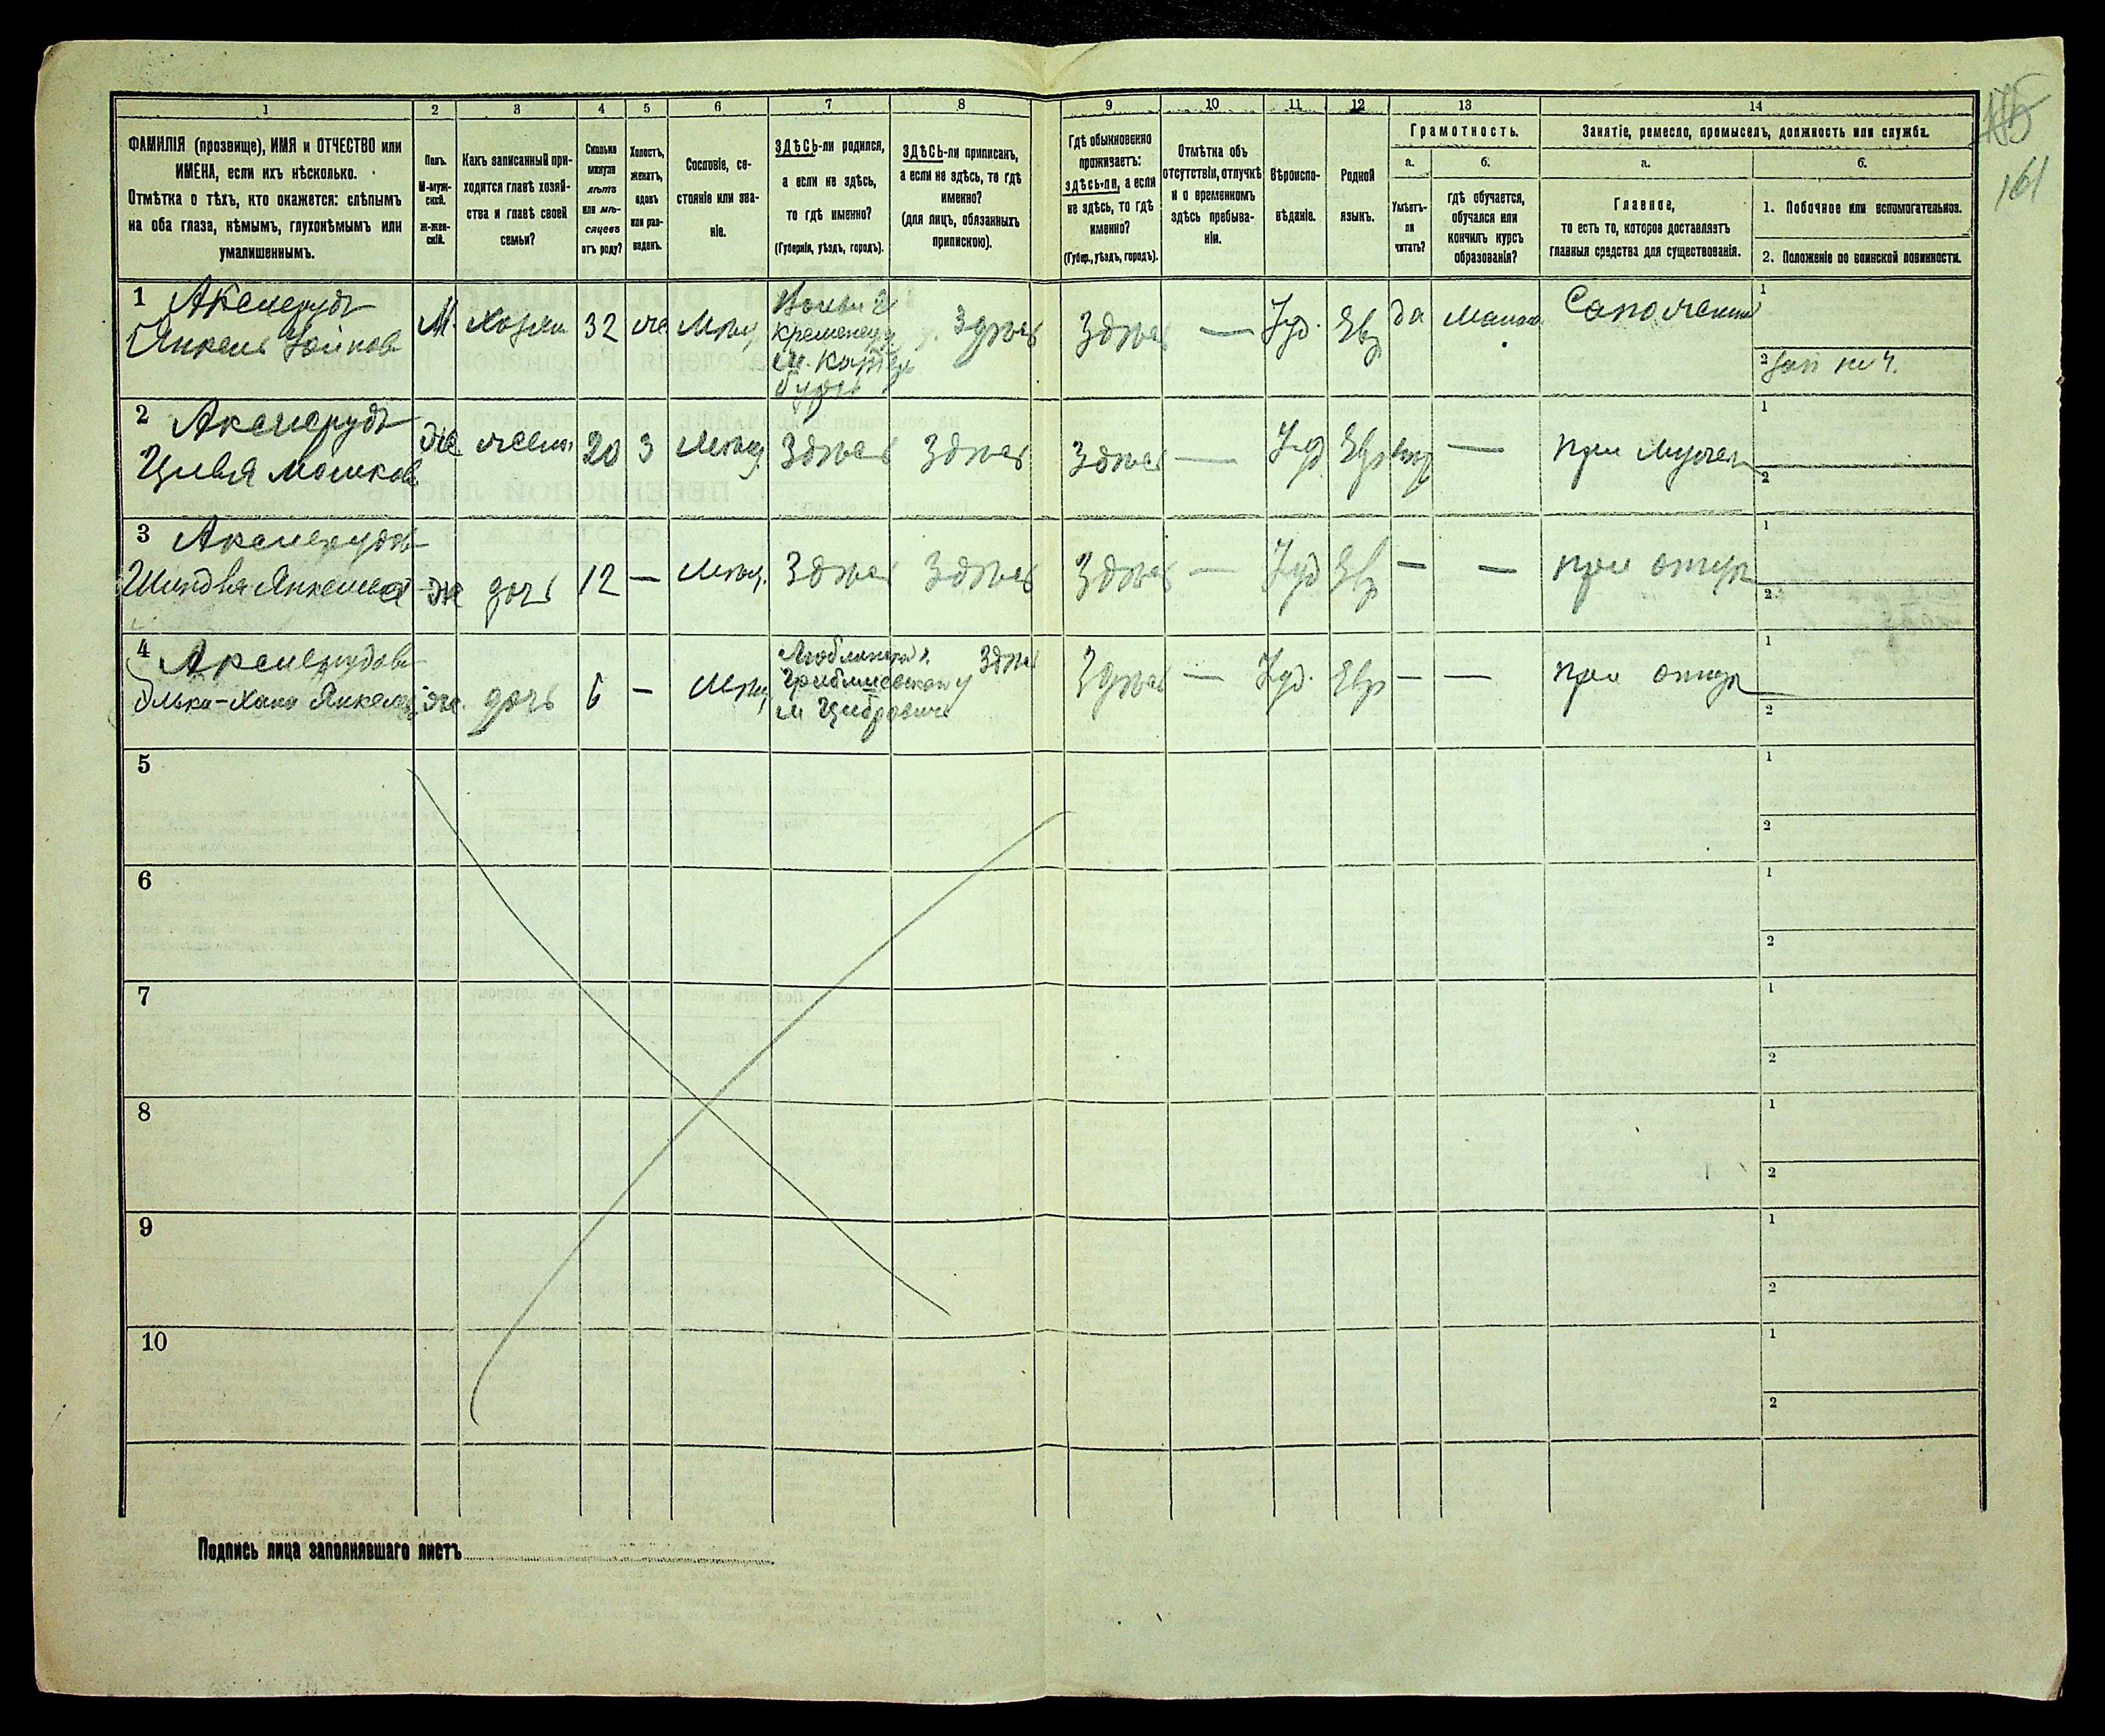 1 2 3 4 5 6 7 8 9 10 11 12 13 14
ФАМИЛІЯ (прозвище), ИМЯ и ОТЧЕСТВО или
ИМЕНА, если ихъ нѣсколько.
Отмѣтка о тѣхъ, кто окажется: слѣпымъ
на оба глаза, нѣмымъ, глухонѣмымъ или
умалишеннымъ.
Полъ.
М-муж-
ской.
ж-жен-
скій.
Какъ записанный при-
ходится главѣ хозяй-
ства и главѣ своей
семьи?
Сколько
минуло
лѣтъ
или мѣ-
сяцевъ
отъ роду?
Холостъ,
женатъ,
вдовъ
или раз-
веденъ.
Сословіе, со-
стояніе или зва-
ніе.
ЗДѢСЬ-ли родился,
а если не здѣсь,
то гдѣ именно?
(Губернія, уѣздъ, городъ).
ЗДѢСЬ-ли приписанъ,
а если не здѣсь, то гдѣ
именно?
(для лицъ, обязанныхъ
припискою).
Гдѣ обыкновенно
проживаетъ:
здѣсь-ли, а если
не здѣсь, то гдѣ
именно?
(Губер., уѣздъ, городъ).
Отмѣтка объ
отсутствіи, отлучкѣ
и о временномъ
здѣсь пребыва-
ніи.
Вѣроиспо-
вѣданіе.
Родной
языкъ.
Грамотность.
а. б.
Умѣетъ-
ли
читать?
гдѣ обучается,
обучался или
кончилъ курсъ
образованія?
Занятіе, ремесло, промыселъ, должность или служба.
а. б.
Главное,
то есть то, которое доставляетъ
главныя средства для существованія.
1. Побочное или вспомогательное.
2. Положеніе по воинской повинности.
161
1 Аксенрудъ
Янкель
М. Хозяи 32 же Мѣщ
Кременецу
Здѣсь Здѣсь — Іуд. Евр да Сапожник
1
2
2 Аксенрудъ
Цивья Мошкова
же жена 20 З Мѣщ Здѣсь Здѣсь Здѣсь — Іуд Евр — при мужѣ
1
2
3 Аксенрудъ
Шиндля Янкелева
же дочь 12 — Мѣщ. Здѣсь Здѣсь Здѣсь — Іуд Евр — — при отцѣ
1
2
4 Аксенрудова
Элька-Хана Янкелев
же. дочь 6 — Мѣщ
Люблинск г.
Здѣсь Здѣсь — Іуд. Евр — — при отцѣ
1
2
5
1
2
6
1
2
7
1
2
8
1
2
9
1
2
10
1
2
Подпись лица заполнявшаго листъ